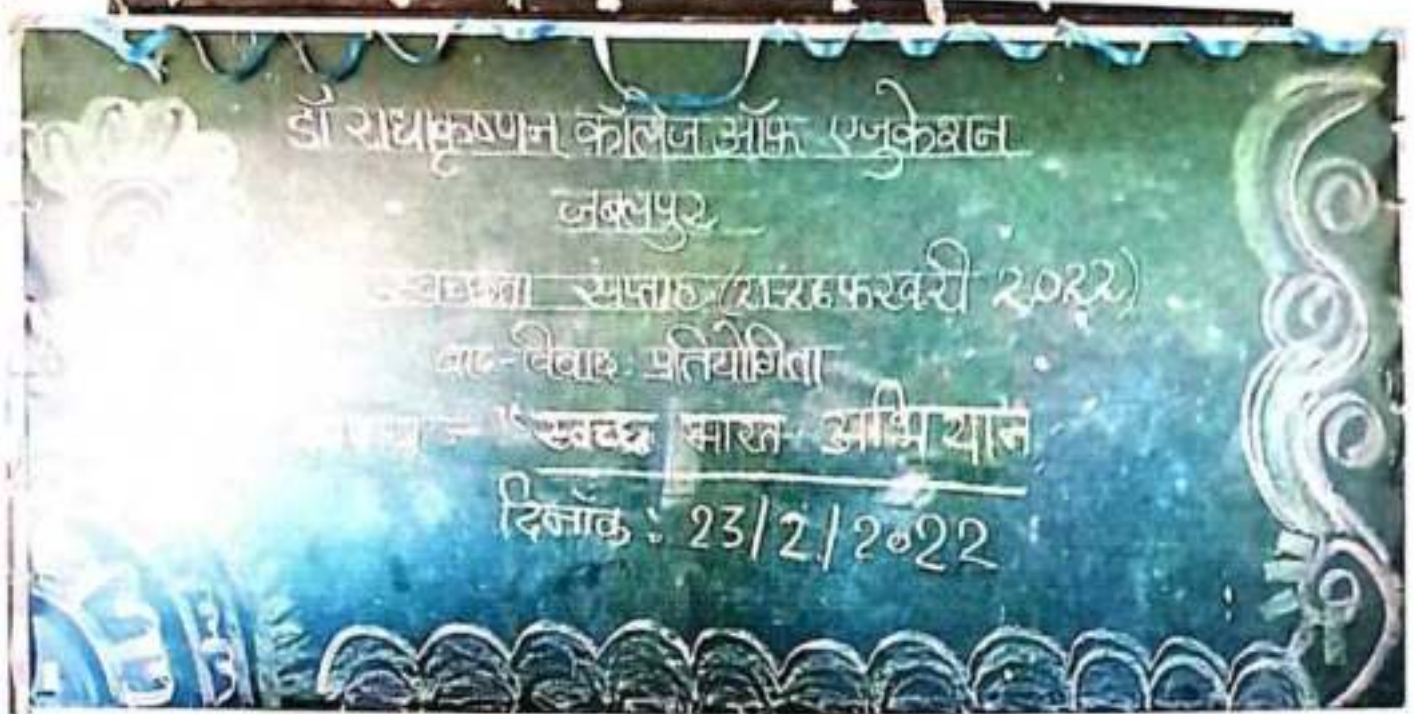 डॉ राधाकृष्णन कॉलेज ऑफ एजुकेशन
जबलपुर
स्वच्छता सप्ताह फरवरी २०२२)
वाद-विवाद प्रतियोगिता
- "स्वच्छ भारत अभियान
दिनाँक : 23/2/2022